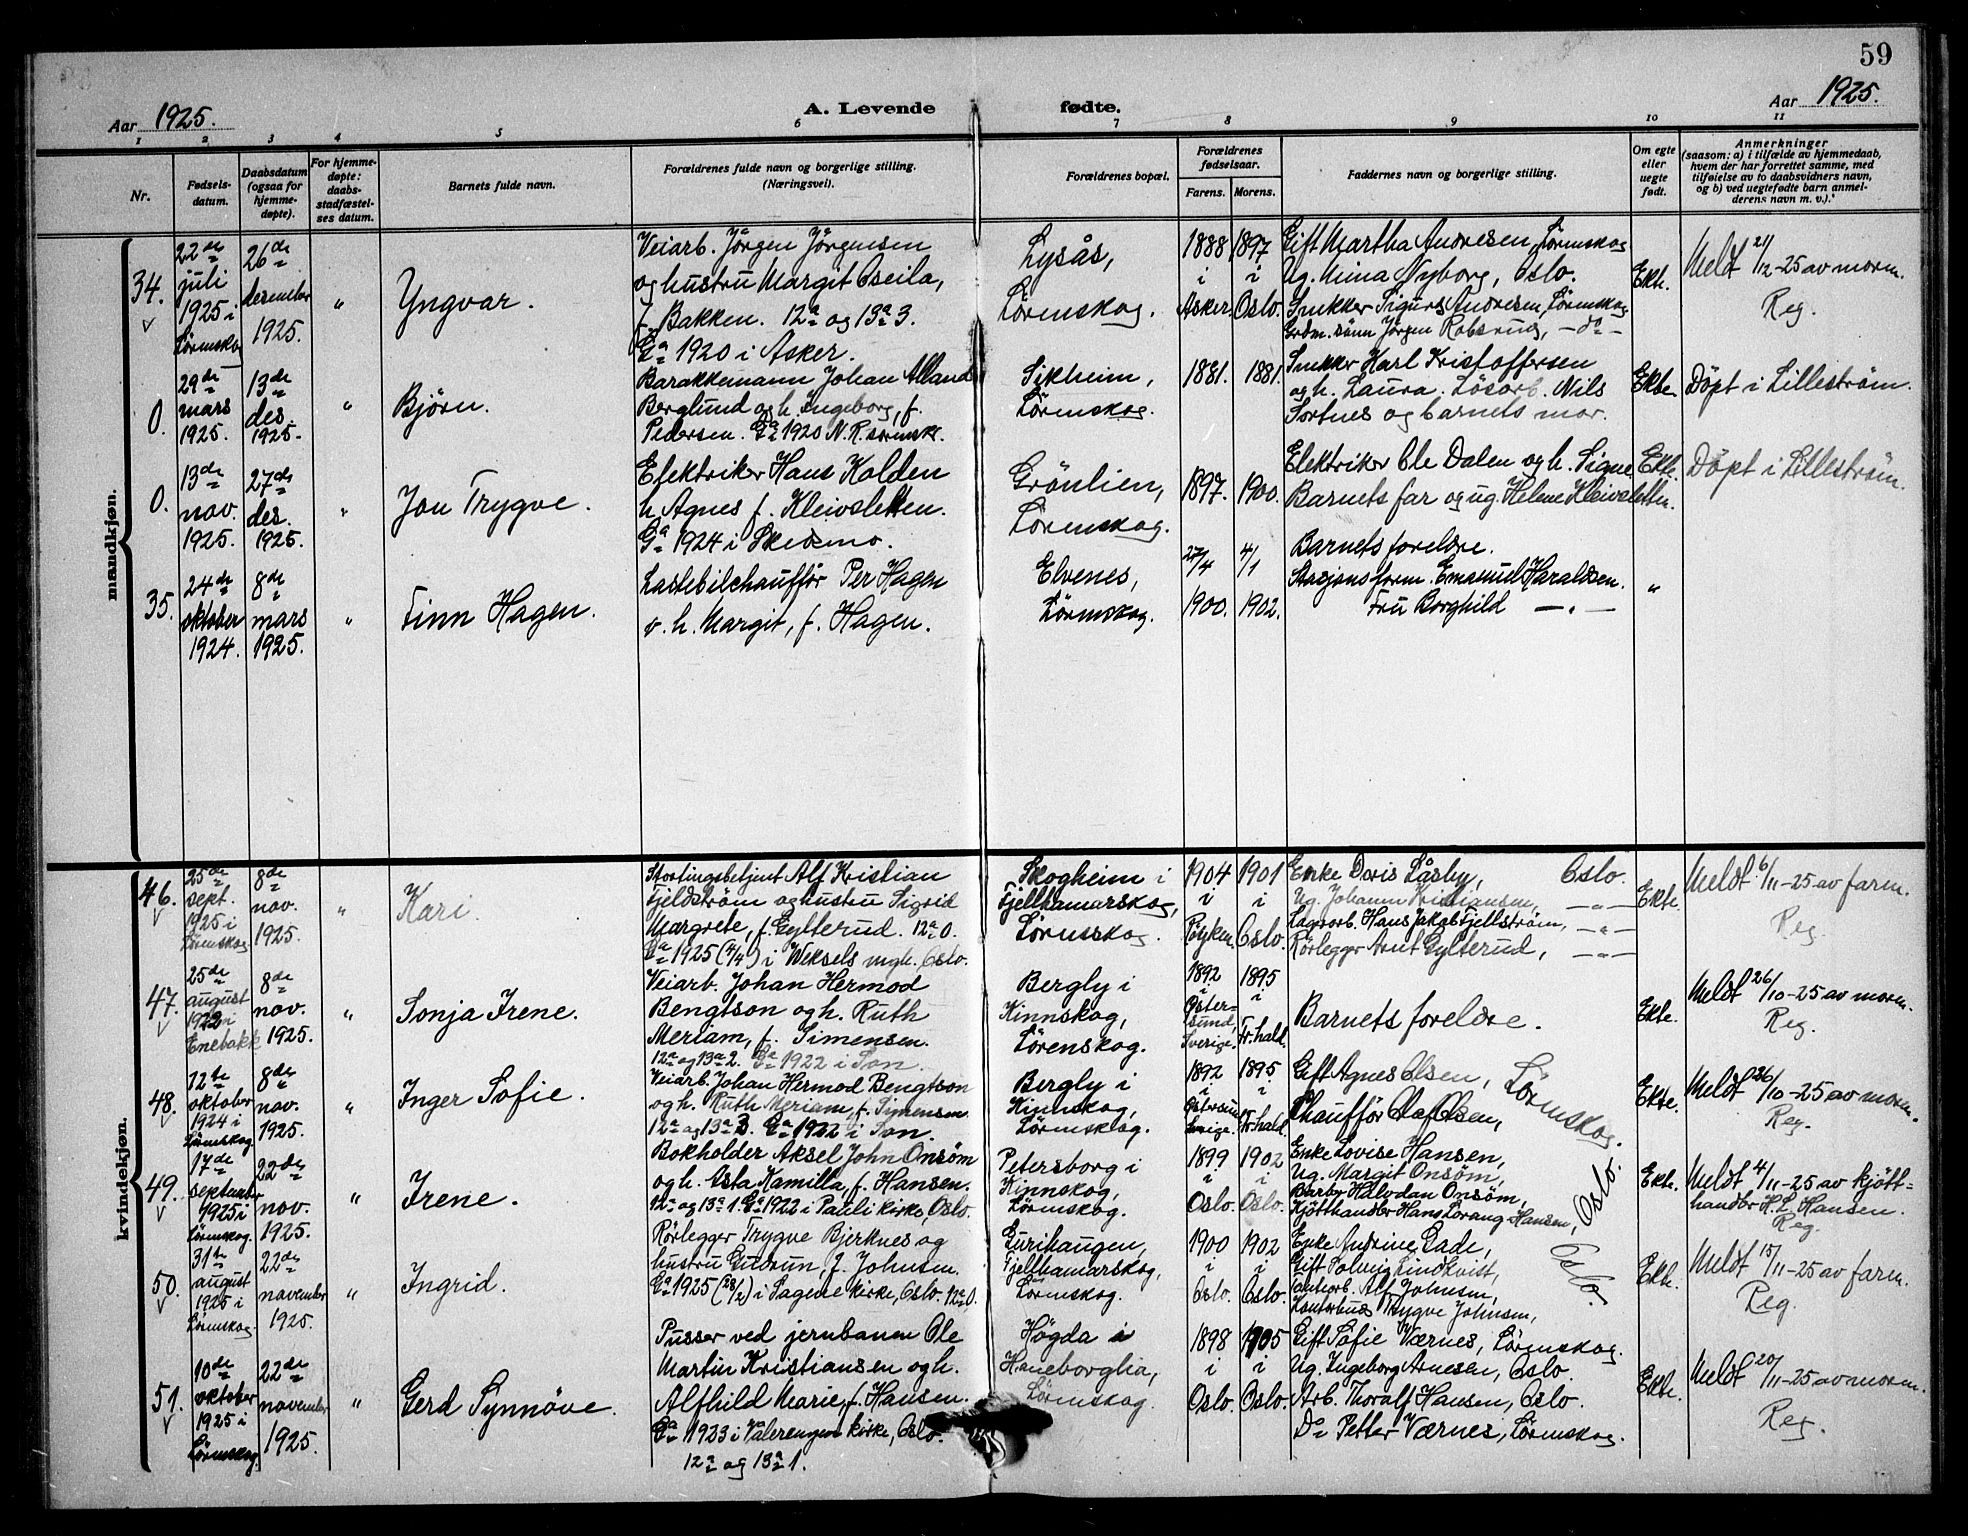 59
Aar 1925.
A. Levende fødte.
Aar 1925.
1 2 3 4 5 6 7 8 9 10 11
Nr.
Fødsels-
datum.
Daabsdatum
(ogsaa for
hjemme-
døpte).
For hjemme-
døpte:
daabs-
stadfæstel-
ses datum.
Barnets fulde navn.
Forældrenes fulde navn og borgerlige stilling.
(Næringsvei).
Forældrenes bopæl.
Forældrenes
fødselsaar.
Farens. Morens.
Faddernes navn og borgerlige stilling.
Om egte
eller
uegte
født.
Anmerkninger
(saasom: a) i tilfælde av hjemmedaab,
hvem der har forrettet samme, med
tilføielse av to daabsvidners navn,
og b) ved uegtefødte barn anmel-
derens navn m. v.).
mandkjøn.
34.
22de
juli
1925 i
Lørenskog
26de
desember
1925.
"
Yngvar.
Veiarb. Jörgen Jörgensen
og hustru Margit Oseila,
f. Bakken. 12a og 13a 3.
Ga 1920 i Asker.
Lysås,
Lörenskog.
1888 1897
i i
Asker. Oslo.
Gift Martha Andresen, Lörenskog
Ug. Mina Nyborg, Oslo.
Snekker Sigurd Andresen, Lörenskog
Grdm. sönn Jörgen Robsrud, - do -
Ekte.
Meldt 21/12-25 av moren.
Reg.
0.
29de
mars
1925.
13de
des.
1925.
"
Björn.
Barakkemann Johan
Berglund og h. Ingeborg, f.
Pedersen. Ga 1920 N. R.
Sikheim,
Lörenskog.
1881. 1881.
Snekker Karl Kristoffersen
og h. Laura. Lösarb. Nils
Sortnes og barnets mor.
Ekte.
Döpt i Lilleström.
0.
13de
nov.
1925.
27de
des.
1925.
"
Jon Trygve.
Elektriker Hans Kolden
h. Agnes f. Kleivsletten.
Ga 1924 i Skedsmo.
Grönlien,
Lörenskog.
1897. 1900.
Elektriker Ole Dalen og h. Signe
Barnets far og ug. Helene Kleivsletten.
Ekte.
Döpt i Lilleström.
35.
24de
oktober
1924.
8de
mars
1925.
"
Finn Hagen.
Lastebilchaufför Per Hagen
o. h. Margit, f. Hagen.
Elvenes,
Lörenskog.
27/4 4/1
1900. 1902.
Barnets foreldre.
Stasjonsform. Emanuel Haraldsen.
Fru Borghild - " -
"
kvindekjøn.
46.
25de
sept.
1925 i
Lörenskog.
8de
nov.
1925.
"
Kari.
Stortingsbetjent Alf Kristian
Fjeldström og hustru Sigrid
Margrete, f. Gylterud. 12a 0.
Ga 1925 (4/4) i Weksels mgh. Oslo.
Skogheim i
Fjellhamarskog,
Lörenskog.
1904 1901
i i
Röyken. Oslo.
Enke Doris Låsby, Oslo.
Ug. Johanne Kristiansen, - " -
Lagerarb. Hans Jakob Fjellström, - " -
Rörlegger Arnt Gylterud, - " -
Ekte.
Meldt 6/11-25 av faren.
Reg.
47.
25de
august
1922 i
Enebakk
8de
nov.
1925.
"
Sonja Irene.
Veiarb. Johan Hermod
Bengtson og h. Ruth
Meriam, f. Simensen.
12a og 13a 2. Ga 1922 i Son.
Bergly i
Kinnskog,
Lörenskog.
1892 1895
i i
Öster-
sund,
Sverige. Fr.hald.
Barnets foreldre.
Ekte.
Meldt 26/10-25 av moren.
Reg.
48.
12te
oktober
1924 i
Lörenskog
8de
nov.
1925.
"
Inger Sofie.
Veiarb. Johan Hermod Bengtson
og h. Ruth Meriam, f. Simensen
12a og 13a 3. Ga 1922 i Son.
Bergly i
Kinnskog,
Lörenskog.
1892 1895
i i
Östersund
Sverige. Fr.hald.
Gift Agnes Olsen,
Chaufför Olaf Olsen,
Lörenskog.
Ekte.
Meldt 26/10-25 av moren.
Reg.
49.
17de
september
1925 i
Lörenskog.
22de
nov.
1925.
"
Irene.
Bokholder Aksel John Onsöm
og h. Asta Kamilla, f. Hansen.
12a og 13a 1. Ga 1922 i Pauli kirke, Oslo.
Petersborg i
Kinnskog,
Lörenskog.
1899 1902
i i
Oslo. Oslo.
Enke Lovise Hansen,
Ug. Margit Onsöm,
Barber Halvdan Onsöm,
Kjötthandler Hans Lorang Hansen,
Oslo.
Ekte.
Meldt 4/11-25 av kjött-
handler H. L. Hansen.
Reg.
50.
31te
august
1925 i
Lörenskog.
22de
november
1925.
"
Ingrid.
Rörlegger Trygve Bjerknes og
hustru Gudrun, f. Johnsen.
Ga 1925 (28/2) i Sagene kirke, Oslo. 12a 0.
Gurihaugen,
Fjellhamarskog,
Lörenskog.
1900 1902
i i
Oslo. Oslo.
Enke Andrine Gade,
Gift Solveig Lindkvist,
Alf Johnsen,
Kontorbud Trygve Johnsen,
Oslo.
Ekte.
Meldt 15/11-25 av faren.
Reg.
51.
10de
oktober
1925 i
Lörenskog.
22de
november
1925.
"
Gerd Synnöve.
Pusser ved jernbanen Ole
Martin Kristiansen og h.
Alfhild Marie, f. Hansen.
Ga 1923 i Vålerengen kirke, Oslo.
12a og 13a 1.
Högda i
Haneborglia,
Lörenskog.
1898 1905
i i
Oslo. Oslo.
Gift Sofie Værnes, Lörenskog.
Ug. Ingeborg Arnesen, Oslo.
Arb. Thoralf Hansen, Oslo.
Do Petter Værnes, Lörenskog.
Ekte.
Meldt 20/11-25 av moren.
Reg.